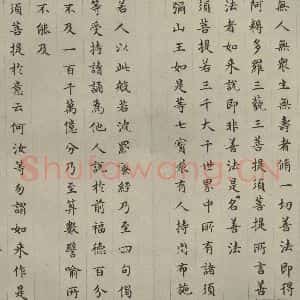 無人無衆生無壽者脩一切善法即得
阿耨多羅三藐三菩提須菩提所言善
法者如來說即非善法是名善法
須菩提若三千大千世界中所有諸須
彌山王如是等七寶聚有人持用布施
若人以此般若波羅蜜經乃至四句偈
等受持讀誦為他人說於前福德百分
不及一百千萬億分乃至算數譬喻所
不能及
須菩提於意云何汝等勿謂如來作是
Shufawang.CN